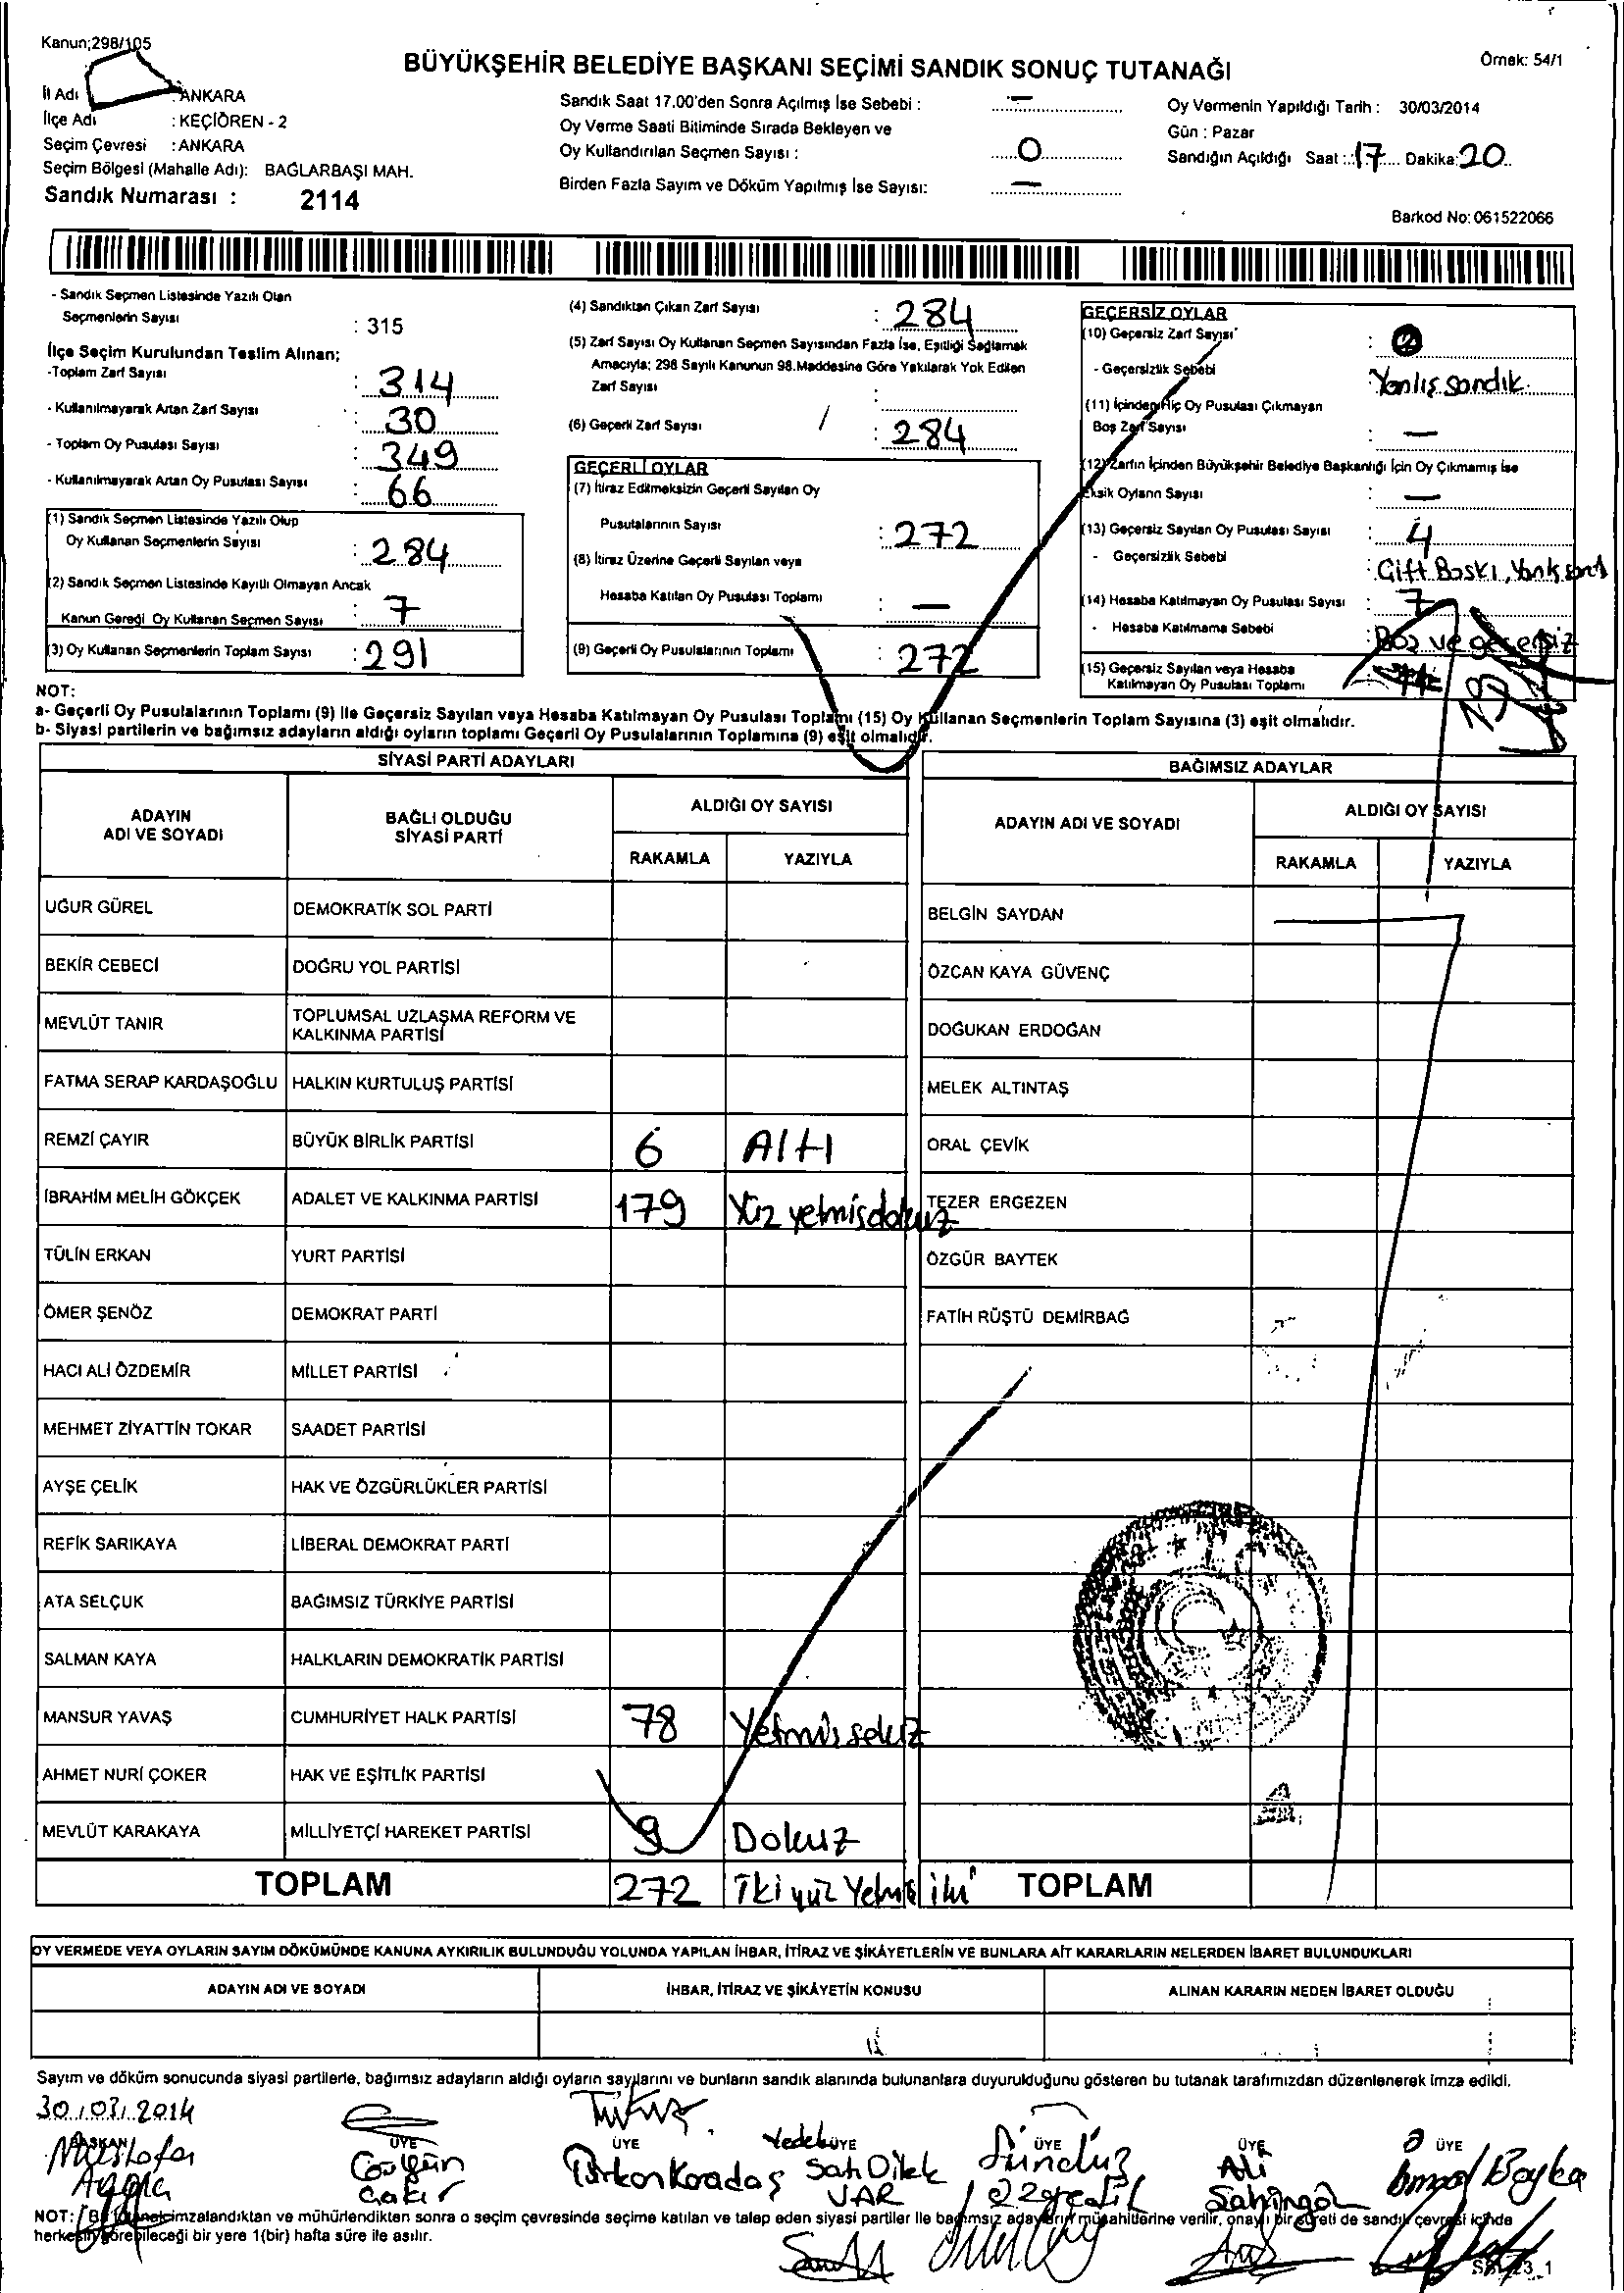 Kanun;298/105
BÜYÜKŞEHİR BELEDİYE BAŞKANI SEÇİMİ SANDIK SONUÇ TUTANAĞI
Örnek: 54/1
İl Adı : ANKARA
İlçe Adı : KEÇİÖREN - 2
Seçim Çevresi : ANKARA
Seçim Bölgesi (Mahalle Adı): BAĞLARBAŞI MAH.
Sandık Numarası : 2114
Sandık Saat 17.00'den Sonra Açılmış İse Sebebi : —
Oy Verme Saati Bitiminde Sırada Bekleyen ve
Oy Kullandırılan Seçmen Sayısı : 0
Birden Fazla Sayım ve Döküm Yapılmış İse Sayısı: —
Oy Vermenin Yapıldığı Tarih : 30/03/2014
Gün : Pazar
Sandığın Açıldığı Saat : 17 Dakika: 20
Barkod No: 061522066
- Sandık Seçmen Listesinde Yazılı Olan
Seçmenlerin Sayısı : 315
İlçe Seçim Kurulundan Teslim Alınan;
-Toplam Zarf Sayısı : 314
- Kullanılmayarak Artan Zarf Sayısı : 30
- Toplam Oy Pusulası Sayısı : 349
- Kullanılmayarak Artan Oy Pusulası Sayısı : 66
(1) Sandık Seçmen Listesinde Yazılı Olup
Oy Kullanan Seçmenlerin Sayısı : 284
(2) Sandık Seçmen Listesinde Kayıtlı Olmayan Ancak
Kanun Gereği Oy Kullanan Seçmen Sayısı : 7
(3) Oy Kullanan Seçmenlerin Toplam Sayısı : 291
(4) Sandıktan Çıkan Zarf Sayısı : 284
(5) Zarf Sayısı Oy Kullanan Seçmen Sayısından Fazla İse, Eşitliği Sağlamak
Amacıyla; 298 Sayılı Kanunun 98.Maddesine Göre Yakılarak Yok Edilen
Zarf Sayısı :
(6) Geçerli Zarf Sayısı : 284
GEÇERLİ OYLAR
(7) İtiraz Edilmeksizin Geçerli Sayılan Oy
Pusulalarının Sayısı : 272
(8) İtiraz Üzerine Geçerli Sayılan veya
Hesaba Katılan Oy Pusulası Toplamı : —
(9) Geçerli Oy Pusulalarının Toplamı : 272
GEÇERSİZ OYLAR
(10) Geçersiz Zarf Sayısı :
- Geçersizlik Sebebi : Yanlış sandık
(11) İçinden Hiç Oy Pusulası Çıkmayan
Boş Zarf Sayısı : —
(12) Zarfın İçinden Büyükşehir Belediye Başkanlığı İçin Oy Çıkmamış İse
Eksik Oyların Sayısı : —
(13) Geçersiz Sayılan Oy Pusulası Sayısı : 4
- Geçersizlik Sebebi : Çift Baskı, Yanlış sand
(14) Hesaba Katılmayan Oy Pusulası Sayısı : 7
- Hesaba Katılmama Sebebi : Boş ve geçersiz
(15) Geçersiz Sayılan veya Hesaba
Katılmayan Oy Pusulası Toplamı
19
NOT:
a- Geçerli Oy Pusulalarının Toplamı (9) İle Geçersiz Sayılan veya Hesaba Katılmayan Oy Pusulası Toplamı (15) Oy Kullanan Seçmenlerin Toplam Sayısına (3) eşit olmalıdır.
b- Siyasi partilerin ve bağımsız adayların aldığı oyların toplamı Geçerli Oy Pusulalarının Toplamına (9) eşit olmalıdır.
SİYASİ PARTİ ADAYLARI
ADAYIN ADI VE SOYADI BAĞLI OLDUĞU SİYASİ PARTİ ALDIĞI OY SAYISI
RAKAMLA YAZIYLA
UĞUR GÜREL DEMOKRATİK SOL PARTİ
BEKİR CEBECİ DOĞRU YOL PARTİSİ
MEVLÜT TANIR TOPLUMSAL UZLAŞMA REFORM VE KALKINMA PARTİSİ
FATMA SERAP KARDAŞOĞLU HALKIN KURTULUŞ PARTİSİ
REMZİ ÇAYIR BÜYÜK BİRLİK PARTİSİ 6 Altı
İBRAHİM MELİH GÖKÇEK ADALET VE KALKINMA PARTİSİ 179 Yüz yetmişdokuz
TÜLİN ERKAN YURT PARTİSİ
ÖMER ŞENÖZ DEMOKRAT PARTİ
HACI ALİ ÖZDEMİR MİLLET PARTİSİ
MEHMET ZİYATTİN TOKAR SAADET PARTİSİ
AYŞE ÇELİK HAK VE ÖZGÜRLÜKLER PARTİSİ
REFİK SARIKAYA LİBERAL DEMOKRAT PARTİ
ATA SELÇUK BAĞIMSIZ TÜRKİYE PARTİSİ
SALMAN KAYA HALKLARIN DEMOKRATİK PARTİSİ
MANSUR YAVAŞ CUMHURİYET HALK PARTİSİ 78 Yetmişsekiz
AHMET NURİ ÇOKER HAK VE EŞİTLİK PARTİSİ
MEVLÜT KARAKAYA MİLLİYETÇİ HAREKET PARTİSİ 9 Dokuz
TOPLAM 272 İkiyüz Yetmiş iki
BAĞIMSIZ ADAYLAR
ADAYIN ADI VE SOYADI ALDIĞI OY SAYISI
RAKAMLA YAZIYLA
BELGİN SAYDAN
ÖZCAN KAYA GÜVENÇ
DOĞUKAN ERDOĞAN
MELEK ALTINTAŞ
ORAL ÇEVİK
TEZER ERGEZEN
ÖZGÜR BAYTEK
FATİH RÜŞTÜ DEMİRBAĞ
TOPLAM
OY VERMEDE VEYA OYLARIN SAYIM DÖKÜMÜNDE KANUNA AYKIRILIK BULUNDUĞU YOLUNDA YAPILAN İHBAR, İTİRAZ VE ŞİKÂYETLERİN VE BUNLARA AİT KARARLARIN NELERDEN İBARET BULUNDUKLARI
ADAYIN ADI VE SOYADI İHBAR, İTİRAZ VE ŞİKÂYETİN KONUSU ALINAN KARARIN NEDEN İBARET OLDUĞU
Sayım ve döküm sonucunda siyasi partilerle, bağımsız adayların aldığı oyların sayılarını ve bunların sandık alanında bulunanlara duyurulduğunu gösteren bu tutanak tarafımızdan düzenlenerek imza edildi.
30.03.2014
BAŞKAN ÜYE ÜYE Yedek ÜYE ÜYE ÜYE ÜYE
Mustafa
Coşkun Çakır
Türkan Karadaş
Satı Dilek VAR
Gündüz Özgeçelik
Ali Şahingöl
NOT: Bu tutanak imzalandıktan ve mühürlendikten sonra o seçim çevresinde seçime katılan ve talep eden siyasi partiler ile bağımsız adayların müşahitlerine verilir, onaylı bir sureti de sandık çevresi içinde
herkesin görebileceği bir yere 1(bir) hafta süre ile asılır.